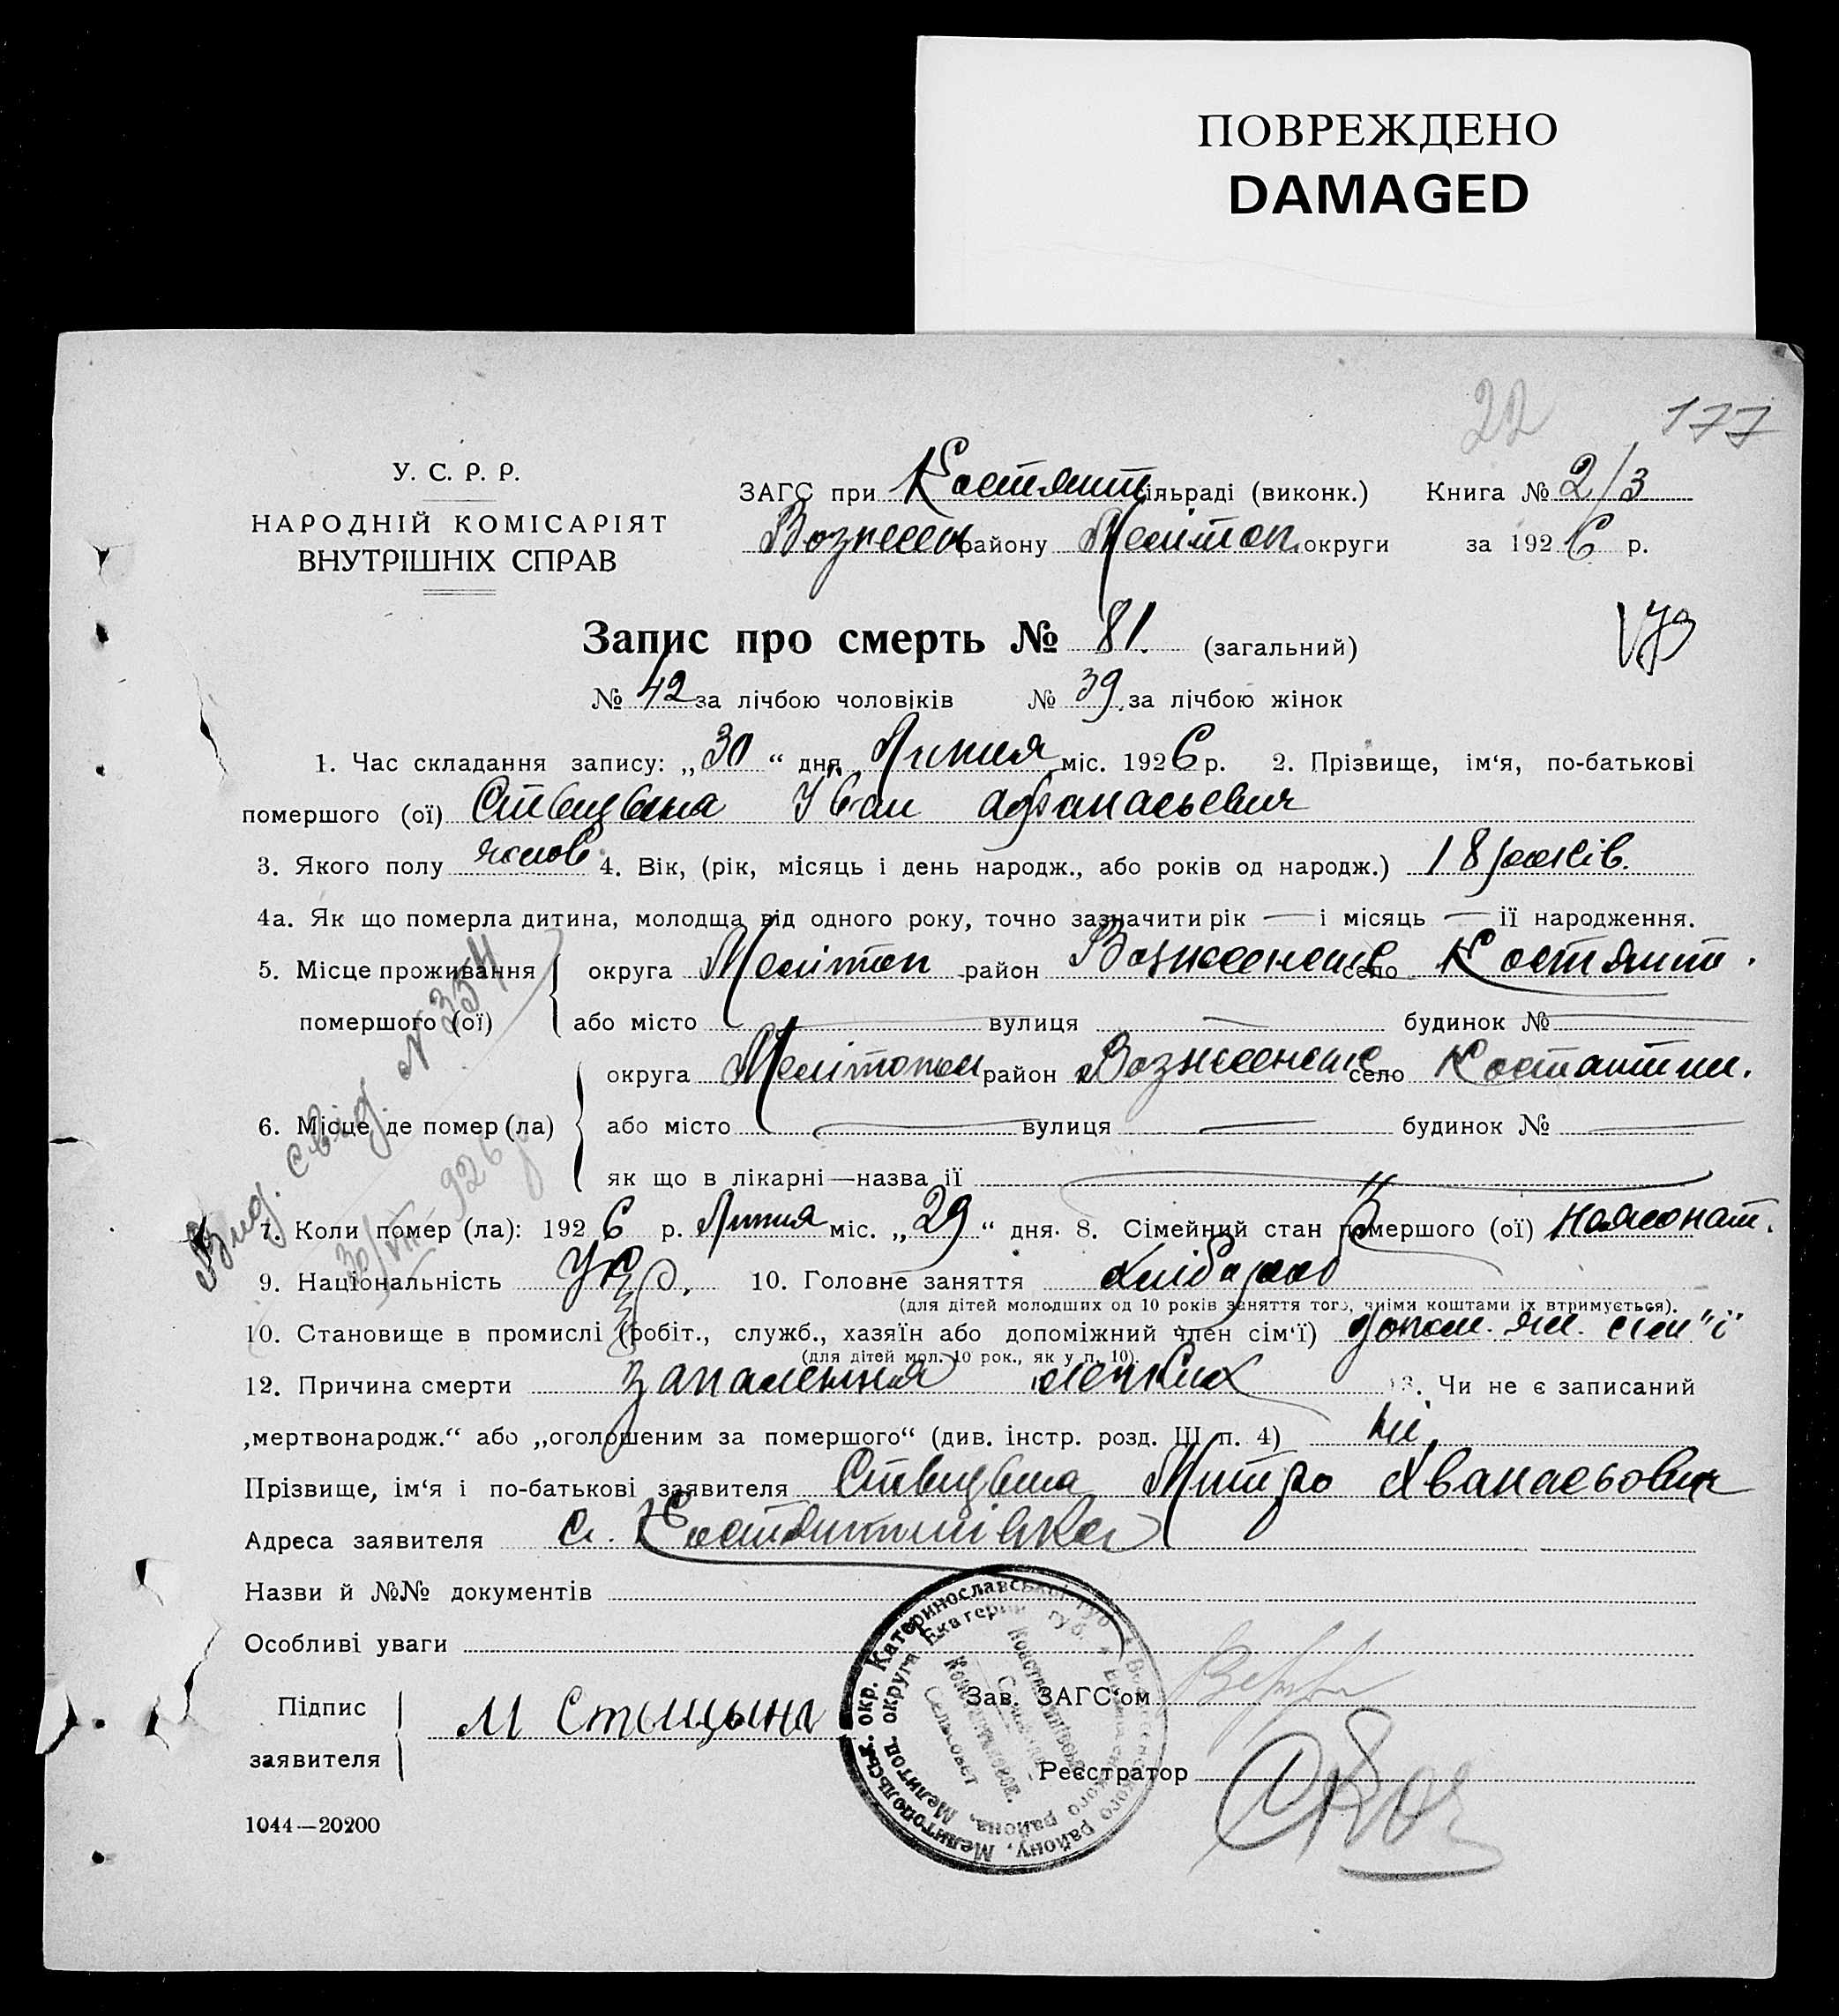 ПОВРЕЖДЕНО
DAMAGED
22 177
У. С. Р. Р.
НАРОДНІЙ КОМІСАРІЯТ
ВНУТРІШНІХ СПРАВ
ЗАГС при Костянт сільраді (виконк.) Книга № 2/3
Вознесен району Меліtoп. округи за 1926 р.
Запис про смерть № 81. (загальний)
№ 42 за лічбою чоловіків № 39. за лічбою жінок
1. Час складання запису: „30“ дня Липня міс. 1926 р. 2. Прізвище, ім‘я, по-батькові
помершого (ої) Ствицвина Іван Афанасьевич
3. Якого полу чолов. 4. Вік, (рік, місяць і день народж., або років од народж.) 18 років.
4а. Як що померла дитина, молодща від одного року, точно зазначити рік — і місяць — ії народження.
5. Місце проживання округа Мелітоп район Вознесенськ село Костянт.
помершого (ої) або місто — вулиця — будинок № —
округа Мелітопол район Вознесенськ село Костантин.
6. Місце де помер (ла) або місто — вулиця — будинок № —
як що в лікарні—назва ії —
Вид. свід. № 354
30/VII 926 р
7. Коли помер (ла): 1926 р. Липня міс. „29“ дня. 8. Сімейний стан помершого (ої) нежонат.
9. Національність Укр. 10. Головне заняття хлібороб
(для дітей молодших од 10 років заняття того, чиїми коштами їх втримується).
10. Становище в промислі (робіт., служб., хазяїн або допоміжний член сім‘ї) допом. чл. сім"ї
(для дітей мол. 10 рок., як у п. 10).
12. Причина смерти запалення легких 13. Чи не є записаний
„мертвонародж.“ або „оголошеним за помершого“ (див. інстр. розд. ІІІ п. 4) ні
Прізвище, ім‘я і по-батькові заявителя Ствицвина Митро Афанасьович
Адреса заявителя с. Костянтинівка
Назви й №№ документів
Особливі уваги
Підпис
заявителя М Стыцына
Зав. ЗАГС‘ом
Реєстратор
1044—20200